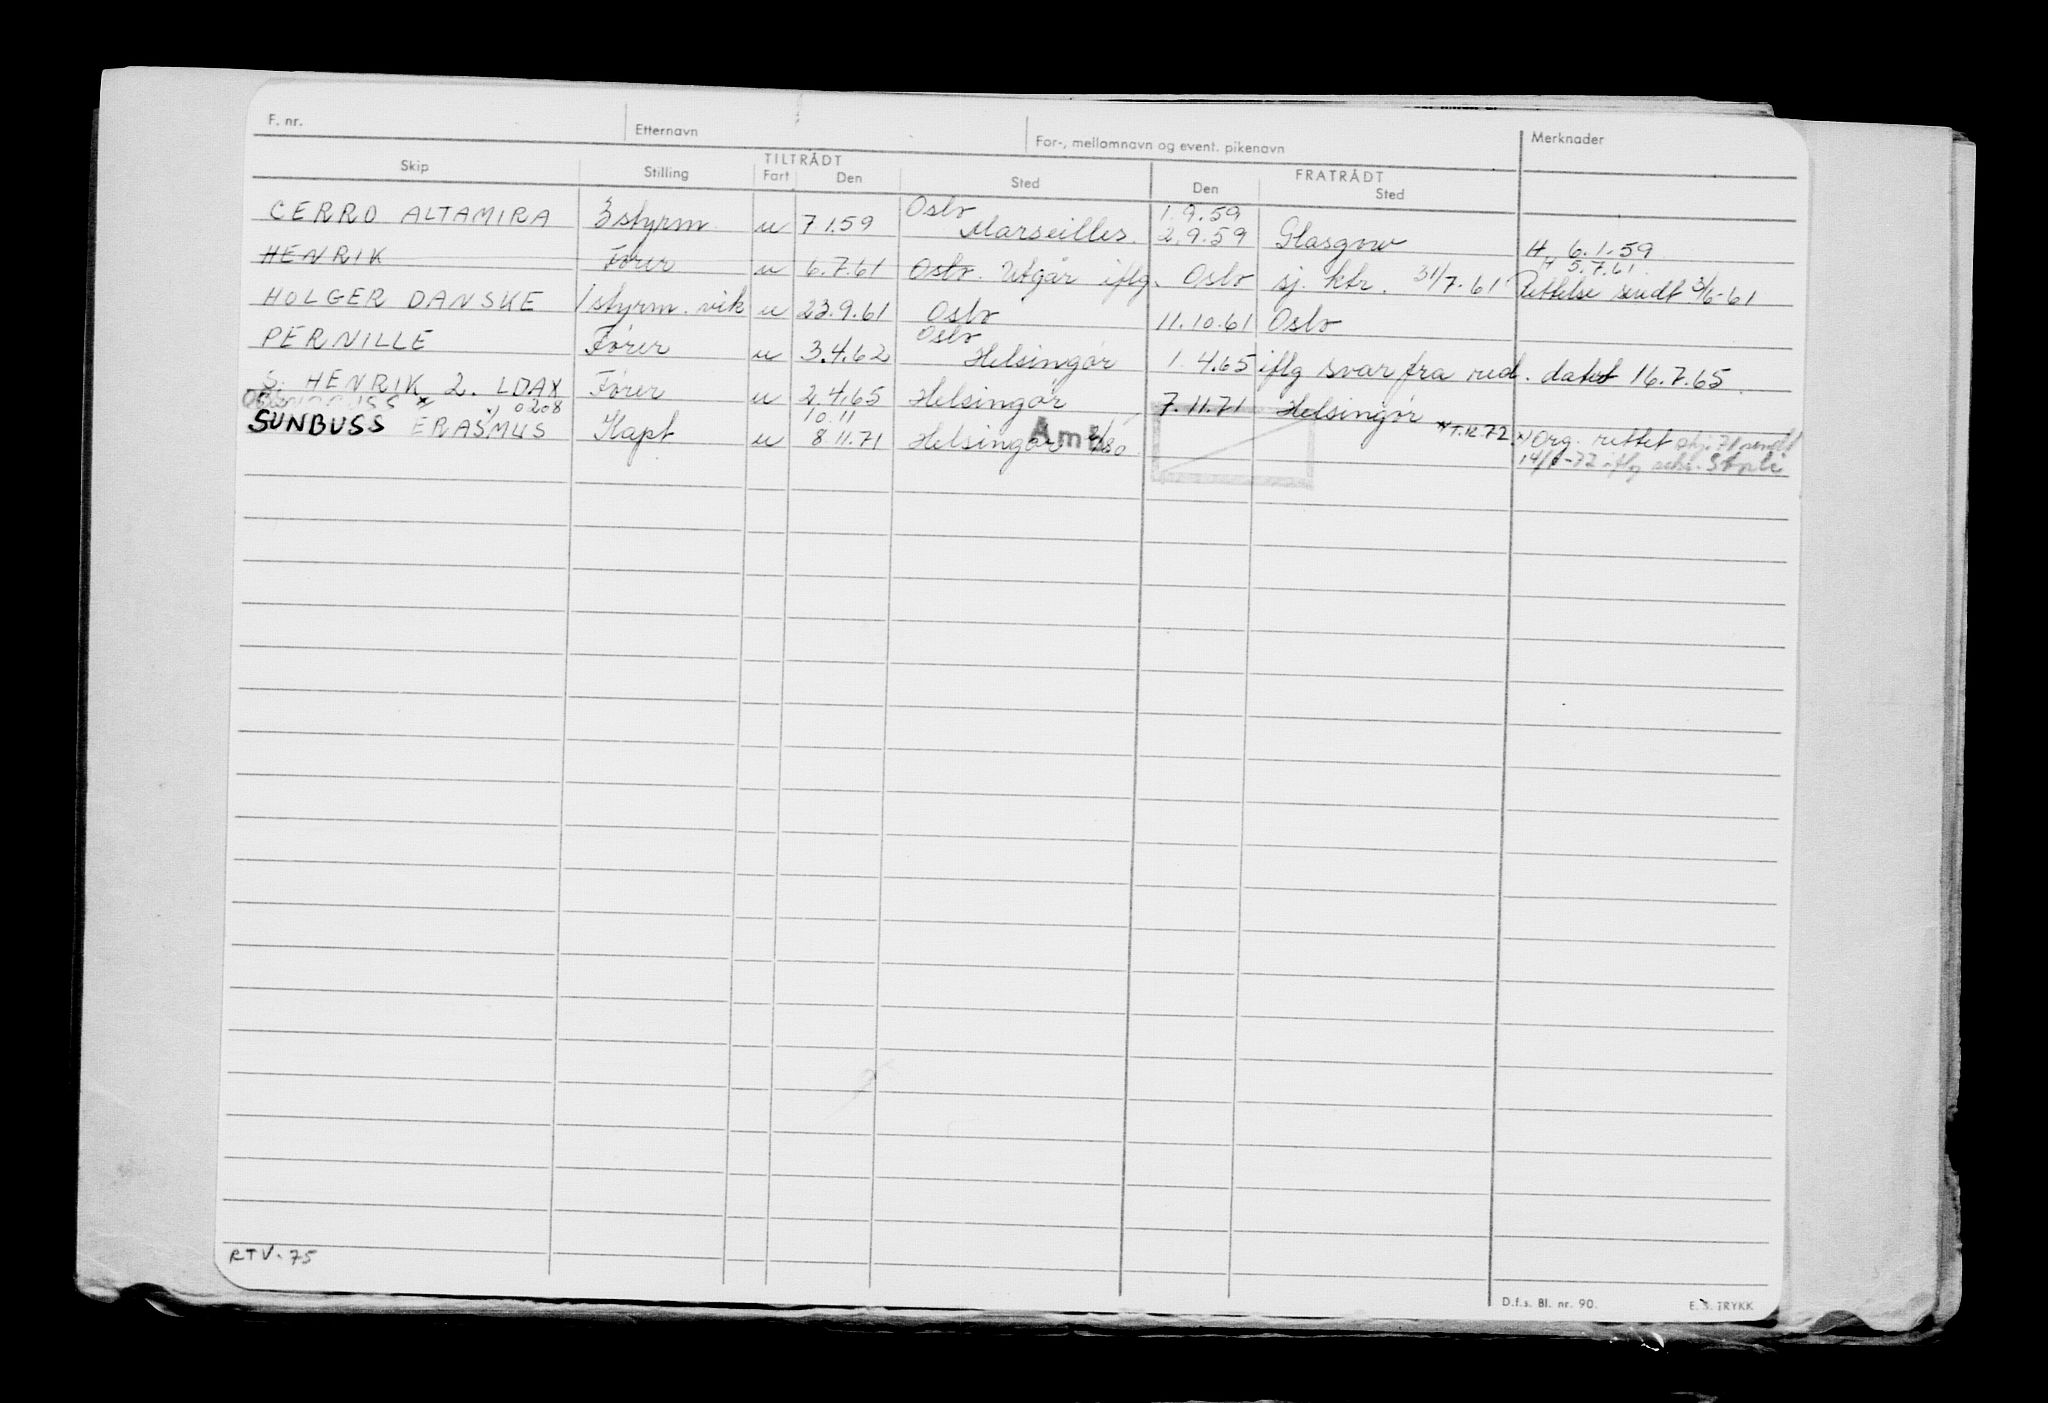 F. nr. Etternavn For-, mellomnavn og event. pikenavn Merknader
TILTRÅDT FRATRÅDT
Skip Stilling Fart Den Sted Den Sted
CERRO ALTAMIRA 3 styrm. u 7.1.59 Oslo Marseilles. 1.9.59 2.9.59 Glasgow H 6.1.59
HENRIK Fører u 6.7.61 Oslo. Utgår iflg. Oslo sj. ktr. 31/7.61 H 5.7.61. Rettelse sendt 3/6-61
HOLGER DANSKE 1 styrm. vik u 23.9.61 Oslo 11.10.61 Oslo
PERNILLE Fører u 3.4.62 Oslo Helsingør 1.4.65 iflg svar fra red. datet 16.7.65
S. HENRIK 2. LDAX Fører u 2.4.65 Helsingør 7.11.71 Helsingør *) T.12.72
x) 0208
SUNBUSS ERASMUS Kapt u 10.11 8.11.71 Helsingør Åm 80 x) Org. rettet
14/6-72 iflg
RTV-75
D.f.s. Bl. nr. 90. E. S. TRYKK